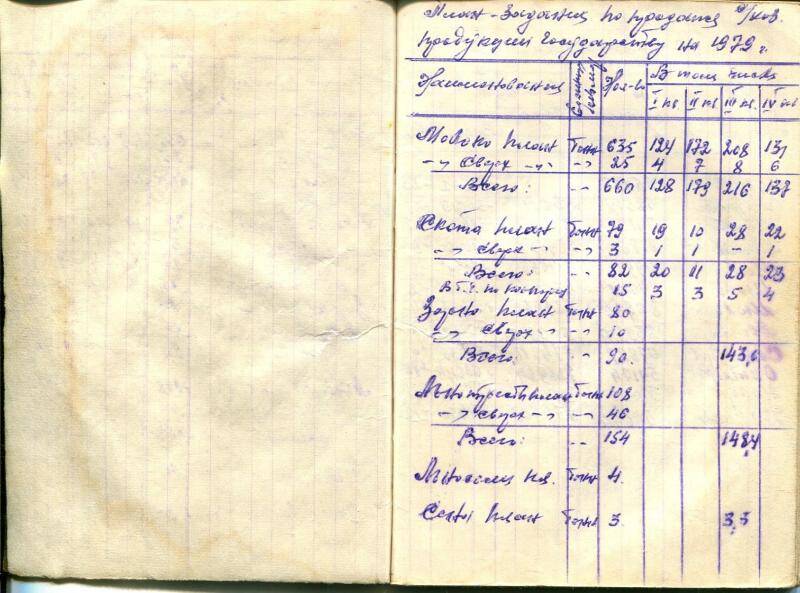 План-Задание по продаже с/хоз.
продукции Государству на 1979 г.
Наименование Единицы измер. Кол-во В том числе
I кв II кв III кв IV кв
Молоко план Тонн 635 124 172 208 131
-"- Сверх -"- -"- 25 4 7 8 6
Всего: -"- 660 128 179 216 137
Скота план Тонн 79 19 10 28 22
-"- Сверх -"- -"- 3 1 1 - 1
Всего: -"- 82 20 11 28 23
В т.ч. 15 3 3 5 4
Зерно план Тонн 80
-"- Сверх -"- -"- 10
Всего: -"- 90. 143,6
Льнотресты план Тонн 108
-"- Сверх -"- -"- 46
Всего: -"- 154 148,4
Льносемя пл. Тонн 4.
план Тонн 3. 3,3